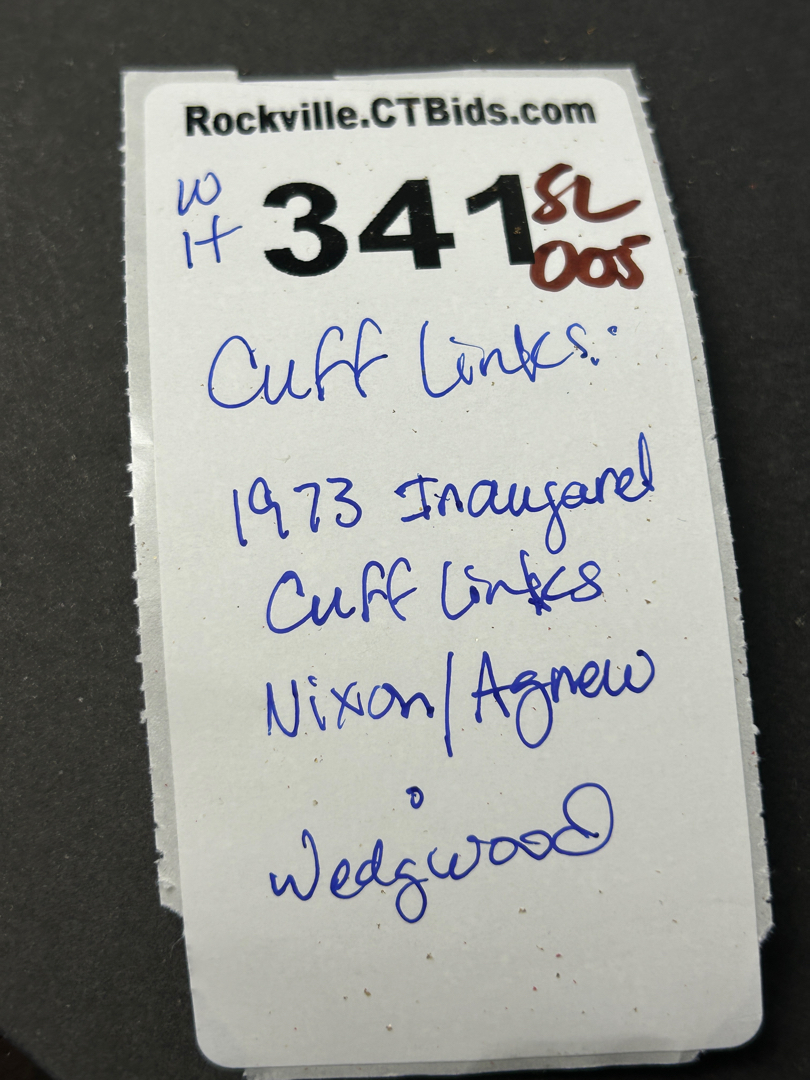 Rockville.CTBids.com
W
1t
341
SL
005
Cuff links:
1973 Inaugaral
Cuff links
Nixon/Agnew
Wedgwood